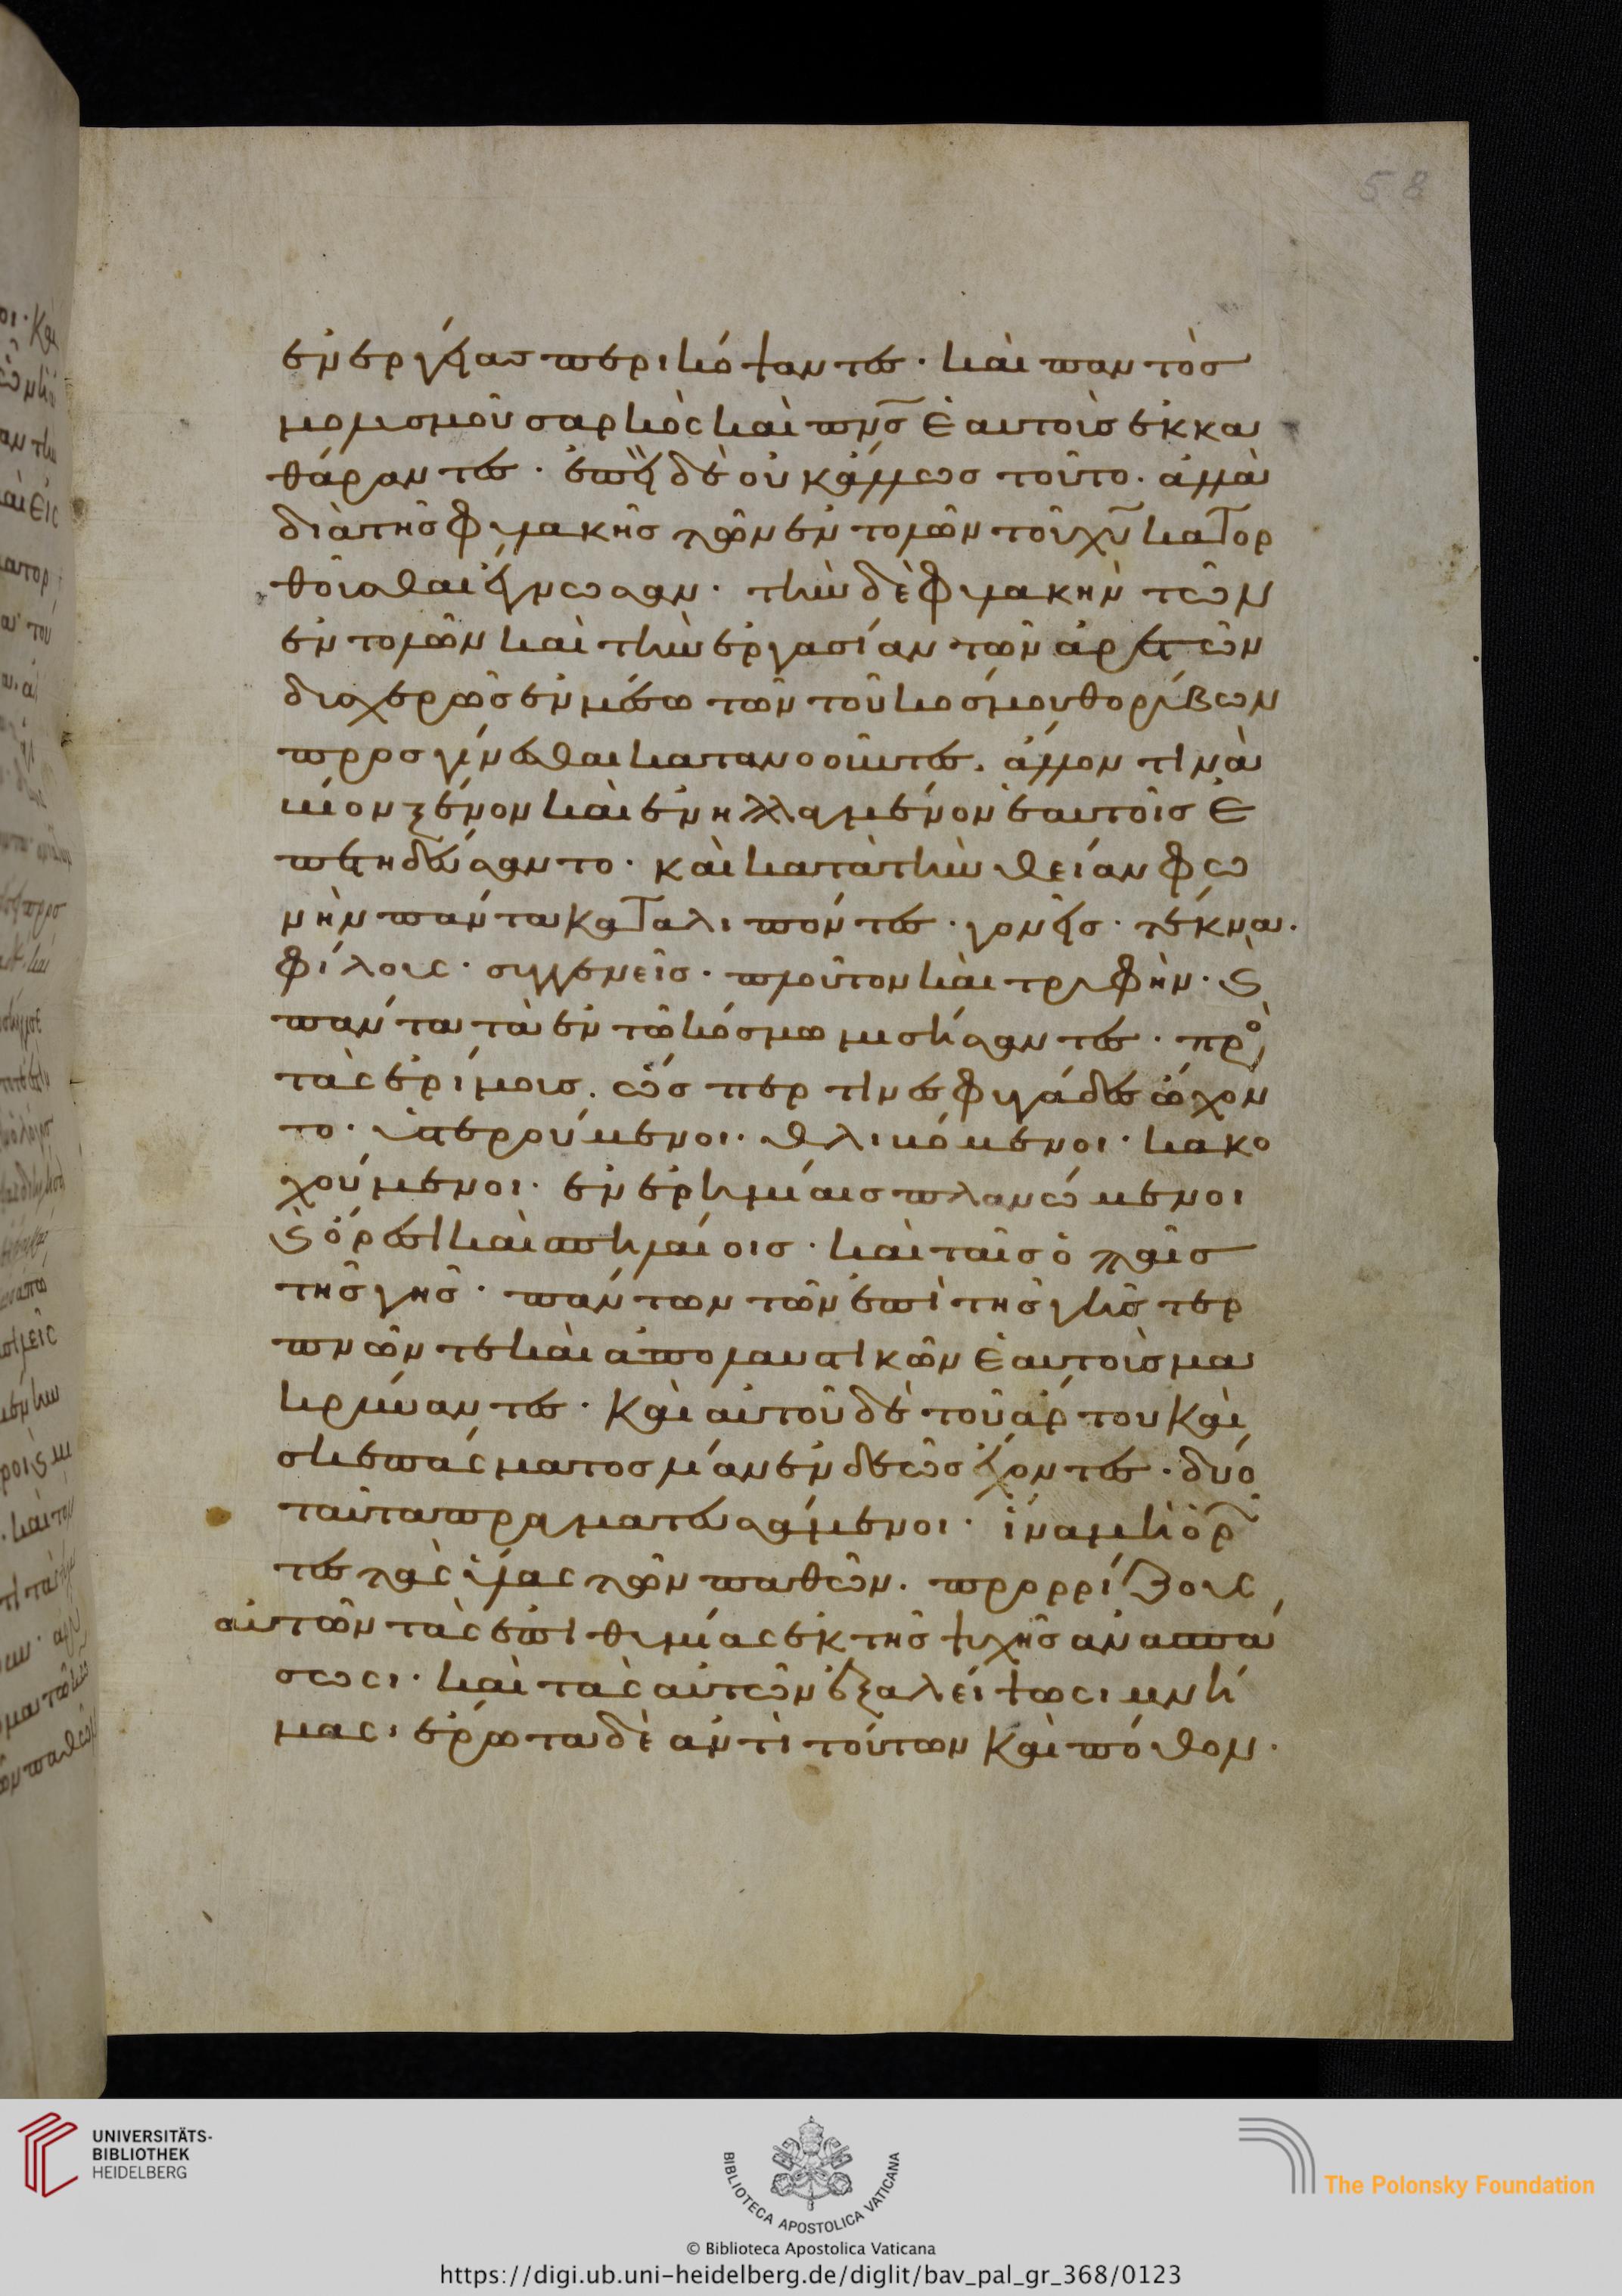 58
ἐνεργείας περικόψαντες· καὶ παντὸς
μολυσμοῦ σαρκὸς καὶ πνς̅ ἑαυτοὺς ἐκκα
θάραντες· ἐπεὶ δὲ οὐκ ἄλλως τοῦτο· ἀλλὰ
διὰ τῆς φυλακῆς τῶν ἐντολῶν τοῦ χυ̅ κατορ
θοῦσθαι ἔγνωσαν· τὴν δὲ φυλακὴν τῶν
ἐντολῶν καὶ τὴν ἐργασίαν τῶν ἀρετῶν
δυσχερῶς ἐν μέσω τῶν τοῦ κόσμου θορύβων
προσγίνεσθαι κατανοοῦντες. ἄλλον τινὰ
βίον ξένον καὶ ἐνηλλαγμένον ἑαυτοῖς ἐ
πετηδεύσαντο· καὶ κατὰ τὴν θείαν φω
νὴν πάντα καταλιπόντες· γονεῖς· τέκνα·
φίλους· συγγενεῖς· πλοῦτον καὶ τρυφὴν· ϗ
πάντα τὰ ἐν τῶ κόσμω μισήσαντες· πρὸ
τὰς ἐρήμους. ὥσπερ τινὲς φυγάδες ὤχον
το· ὑστερούμενοι· θλιβόμενοι· κακο
χούμενοι· ἐν ἐρημίαις πλανώμενοι
ϗ ὄρεσι καὶ σπηλαίοις· καὶ ταῖς ὀπαῖς
τῆς γῆς· πάντων τῶν ἐπὶ τῆς γῆς τερ
πνῶν τε καὶ ἀπολαυστικῶν ἑαυτοὺς μα
κρύναντες· καὶ αὐτοῦ δὲ τοῦ ἄρτου καὶ
σκεπάσματος λίαν ἐνδεῶς ἔχοντες· δύο
ταῦτα πραγματευσάμενοι· ἵνα μὴ ὁρῶν
τες τὰς ὕλας τῶν παθῶν. προρρίζους
αὐτῶν τὰς ἐπιθυμίας ἐκ τῆς ψυχῆς ἀνασπά
σωσι· καὶ τὰς αὐτῶν ἐξαλείψωσι μνή
μας· ἔρωτα δὲ ἀντὶ τούτων καὶ πόθον·
UNIVERSITÄTS-
BIBLIOTHEK
HEIDELBERG
BIBLIOTECA APOSTOLICA VATICANA
© Biblioteca Apostolica Vaticana
The Polonsky Foundation
https://digi.ub.uni-heidelberg.de/diglit/bav_pal_gr_368/0123